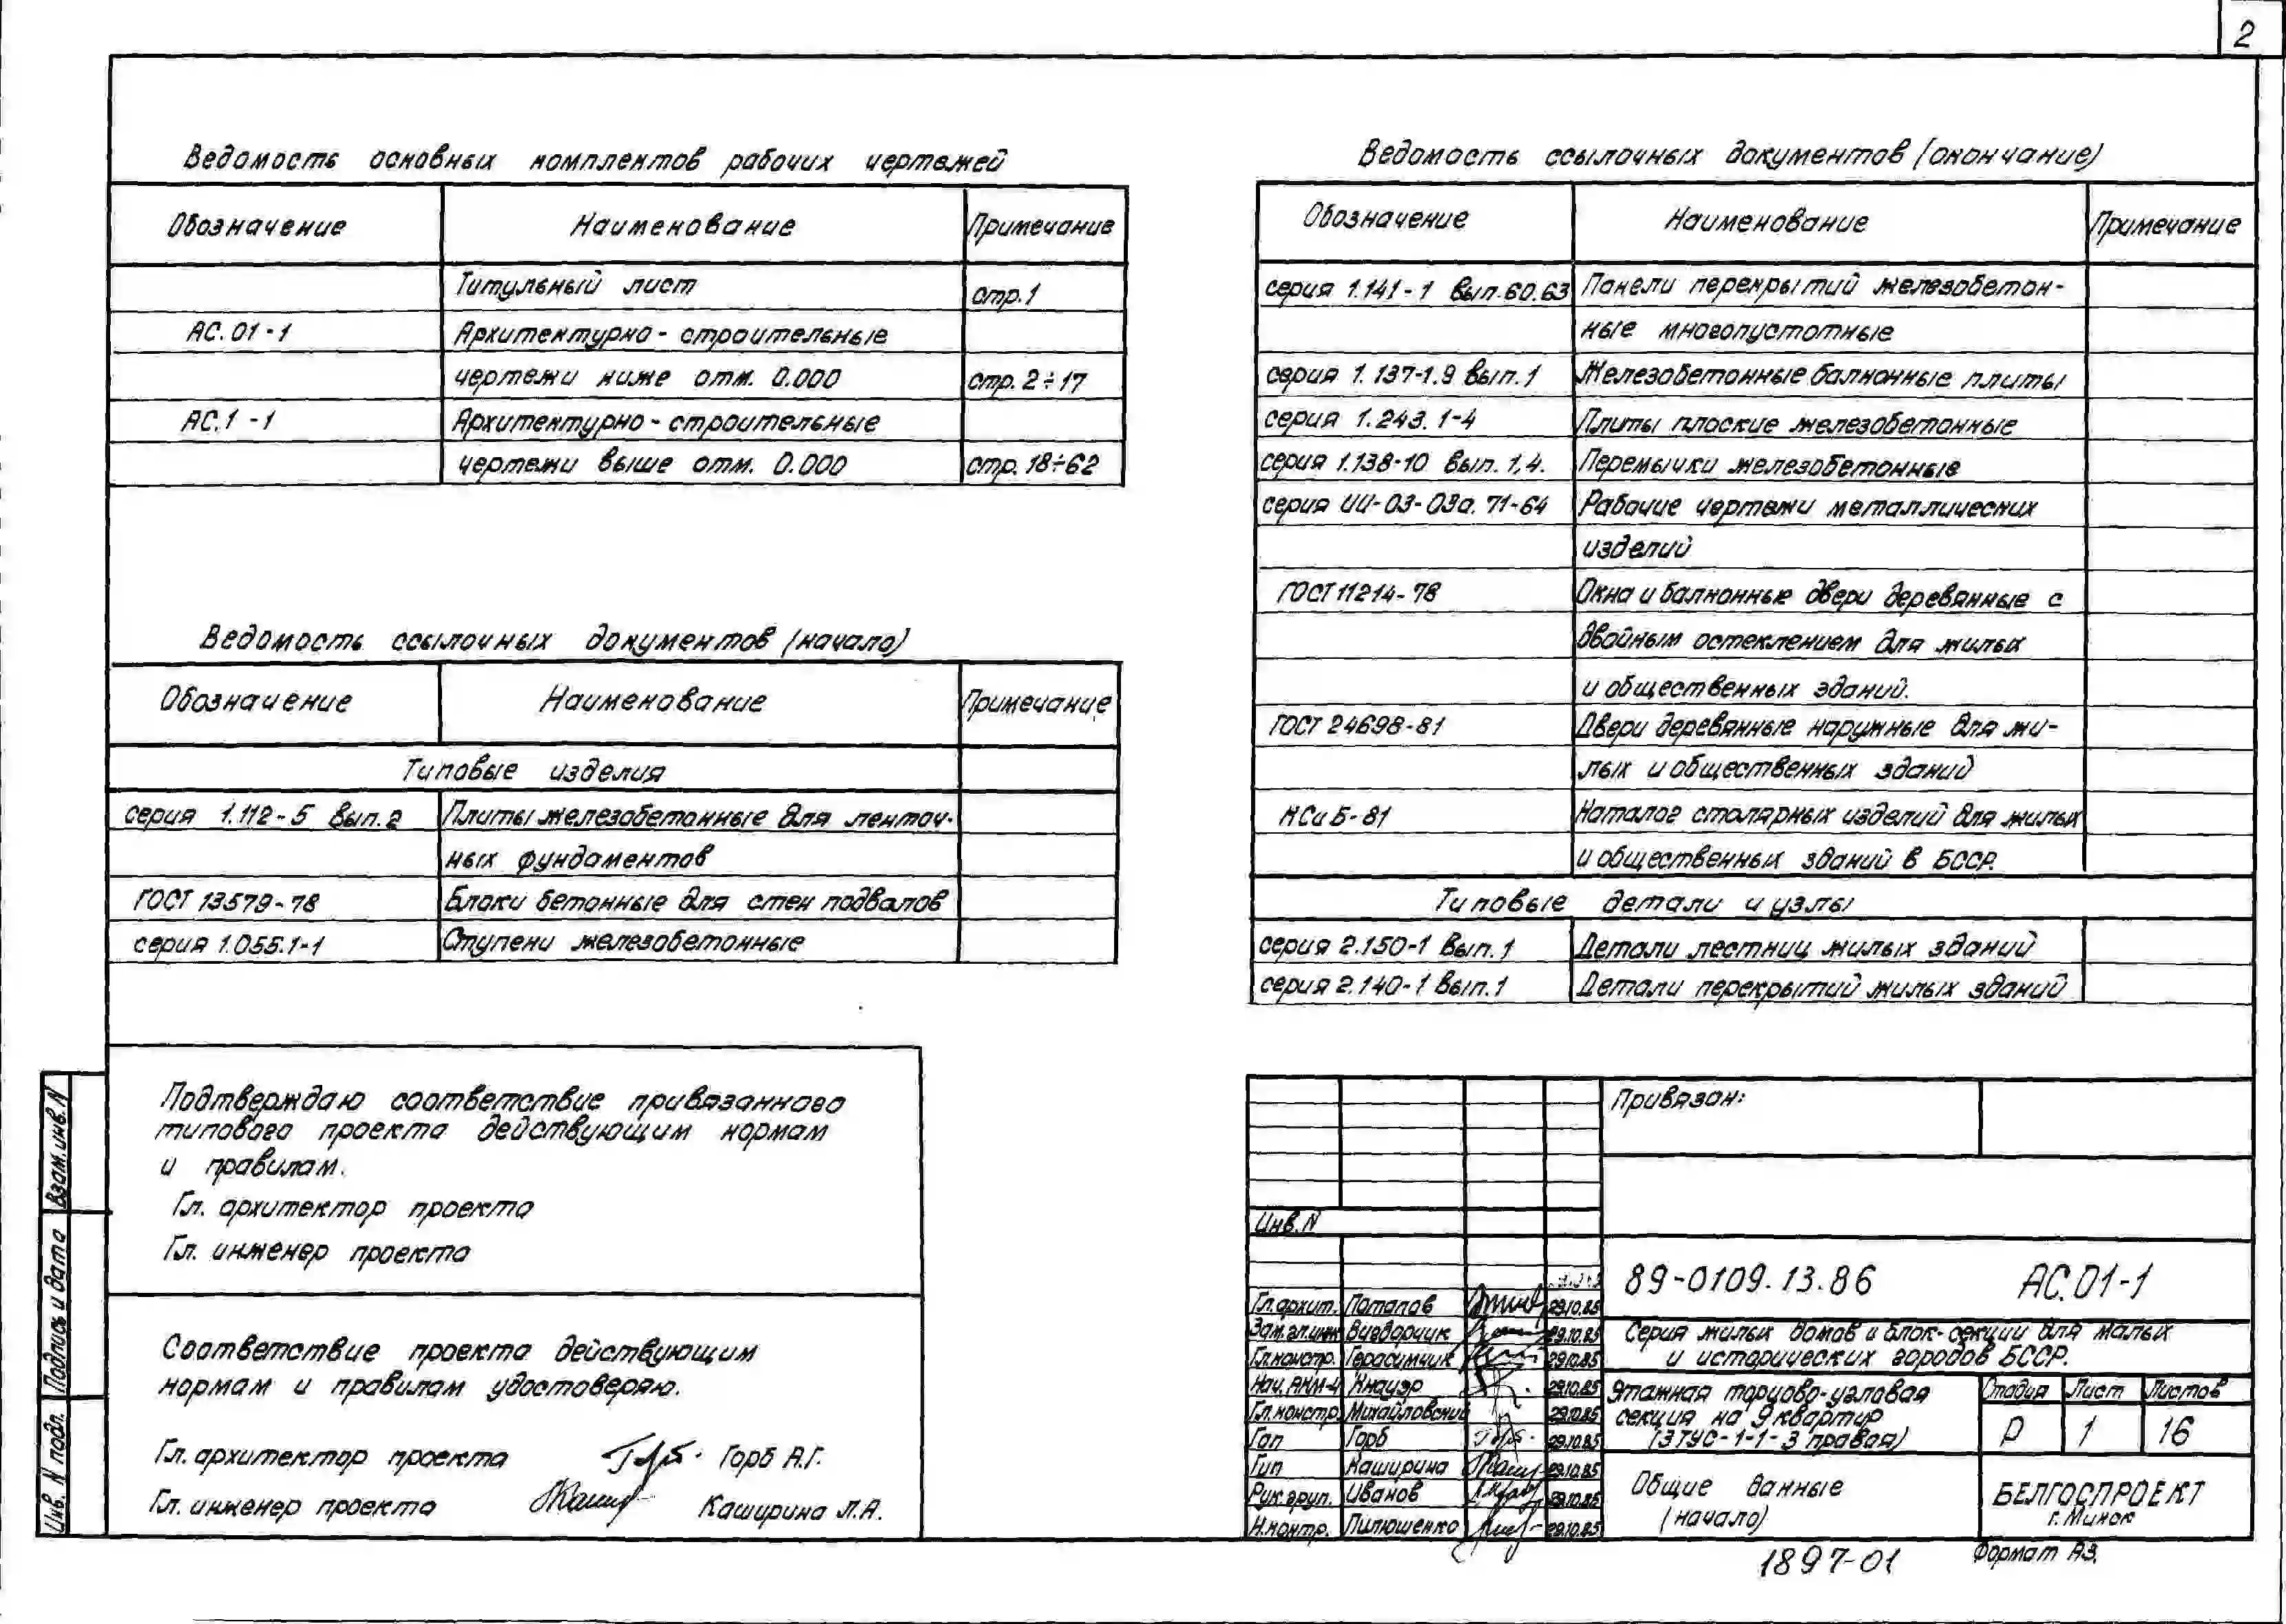 2
Ведомость основных комплектов рабочих чертежей
Обозначение Наименование Примечание
Титульный лист стр.1
АС.01-1 Архитектурно-строительные
чертежи ниже отм. 0.000 стр. 2÷17
АС.1-1 Архитектурно-строительные
чертежи выше отм. 0.000 стр. 18÷62
Ведомость ссылочных документов (начало)
Обозначение Наименование Примечание
Типовые изделия
серия 1.112-5 вып.2 Плиты железобетонные для ленточ-
ных фундаментов
ГОСТ 13579-78 Блоки бетонные для стен подвалов
серия 1.055.1-1 Ступени железобетонные
Ведомость ссылочных документов (окончание)
Обозначение Наименование Примечание
серия 1.141-1 вып.60.63 Панели перекрытий железобетон-
ные многопустотные
серия 1.137-1.9 вып.1 Железобетонные балконные плиты
серия 1.243.1-4 Плиты плоские железобетонные
серия 1.138-10 вып. 1,4. Перемычки железобетонные
серия ИИ-03-03а. 71-64 Рабочие чертежи металлических
изделий
ГОСТ 11214-78 Окна и балконные двери деревянные с
двойным остеклением для жилых
и общественных зданий.
ГОСТ 24698-81 Двери деревянные наружные для жи-
лых и общественных зданий
КСиБ-81 Каталог столярных изделий для жилых
и общественных зданий в БССР.
Типовые детали и узлы
серия 2.150-1 Вып.1 Детали лестниц жилых зданий
серия 2.140-1 Вып.1 Детали перекрытий жилых зданий
Подтверждаю соответствие привязанного
типового проекта действующим нормам
и правилам.
Гл. архитектор проекта
Гл. инженер проекта
Соответствие проекта действующим
нормам и правилам удостоверяю.
Гл. архитектор проекта Горб А.Г.
Гл. инженер проекта Каширина Л.А.
Взам.инв.N
Подпись и дата
Инв. N подл.
Привязан:
Инв.N
89-0109.13.86 АС.01-1
Гл.архит. Потапов 29.10.85
Зам.гл.инж Вигдорчик 29.10.85
Гл.констр. Герасимчик 29.10.85
Нач.АКМ-4 Кнауэр 29.10.85
Гл.констр. Михайловский 29.10.85
Гап Горб 29.10.85
Гип Каширина 29.10.85
Рук.груп. Иванов 29.10.85
Н.контр. Пилюшенко 29.10.85
Серия жилых домов и блок-секции для малых
и исторических городов БССР.
Этажная торцово-угловая
секция на 9 квартир
(3ТУС-1-1-3 правая)
Стадия Лист Листов
Р 1 16
Общие данные
(начало)
БЕЛГОСПРОЕКТ
г. Минск
1897-01
Формат А3.